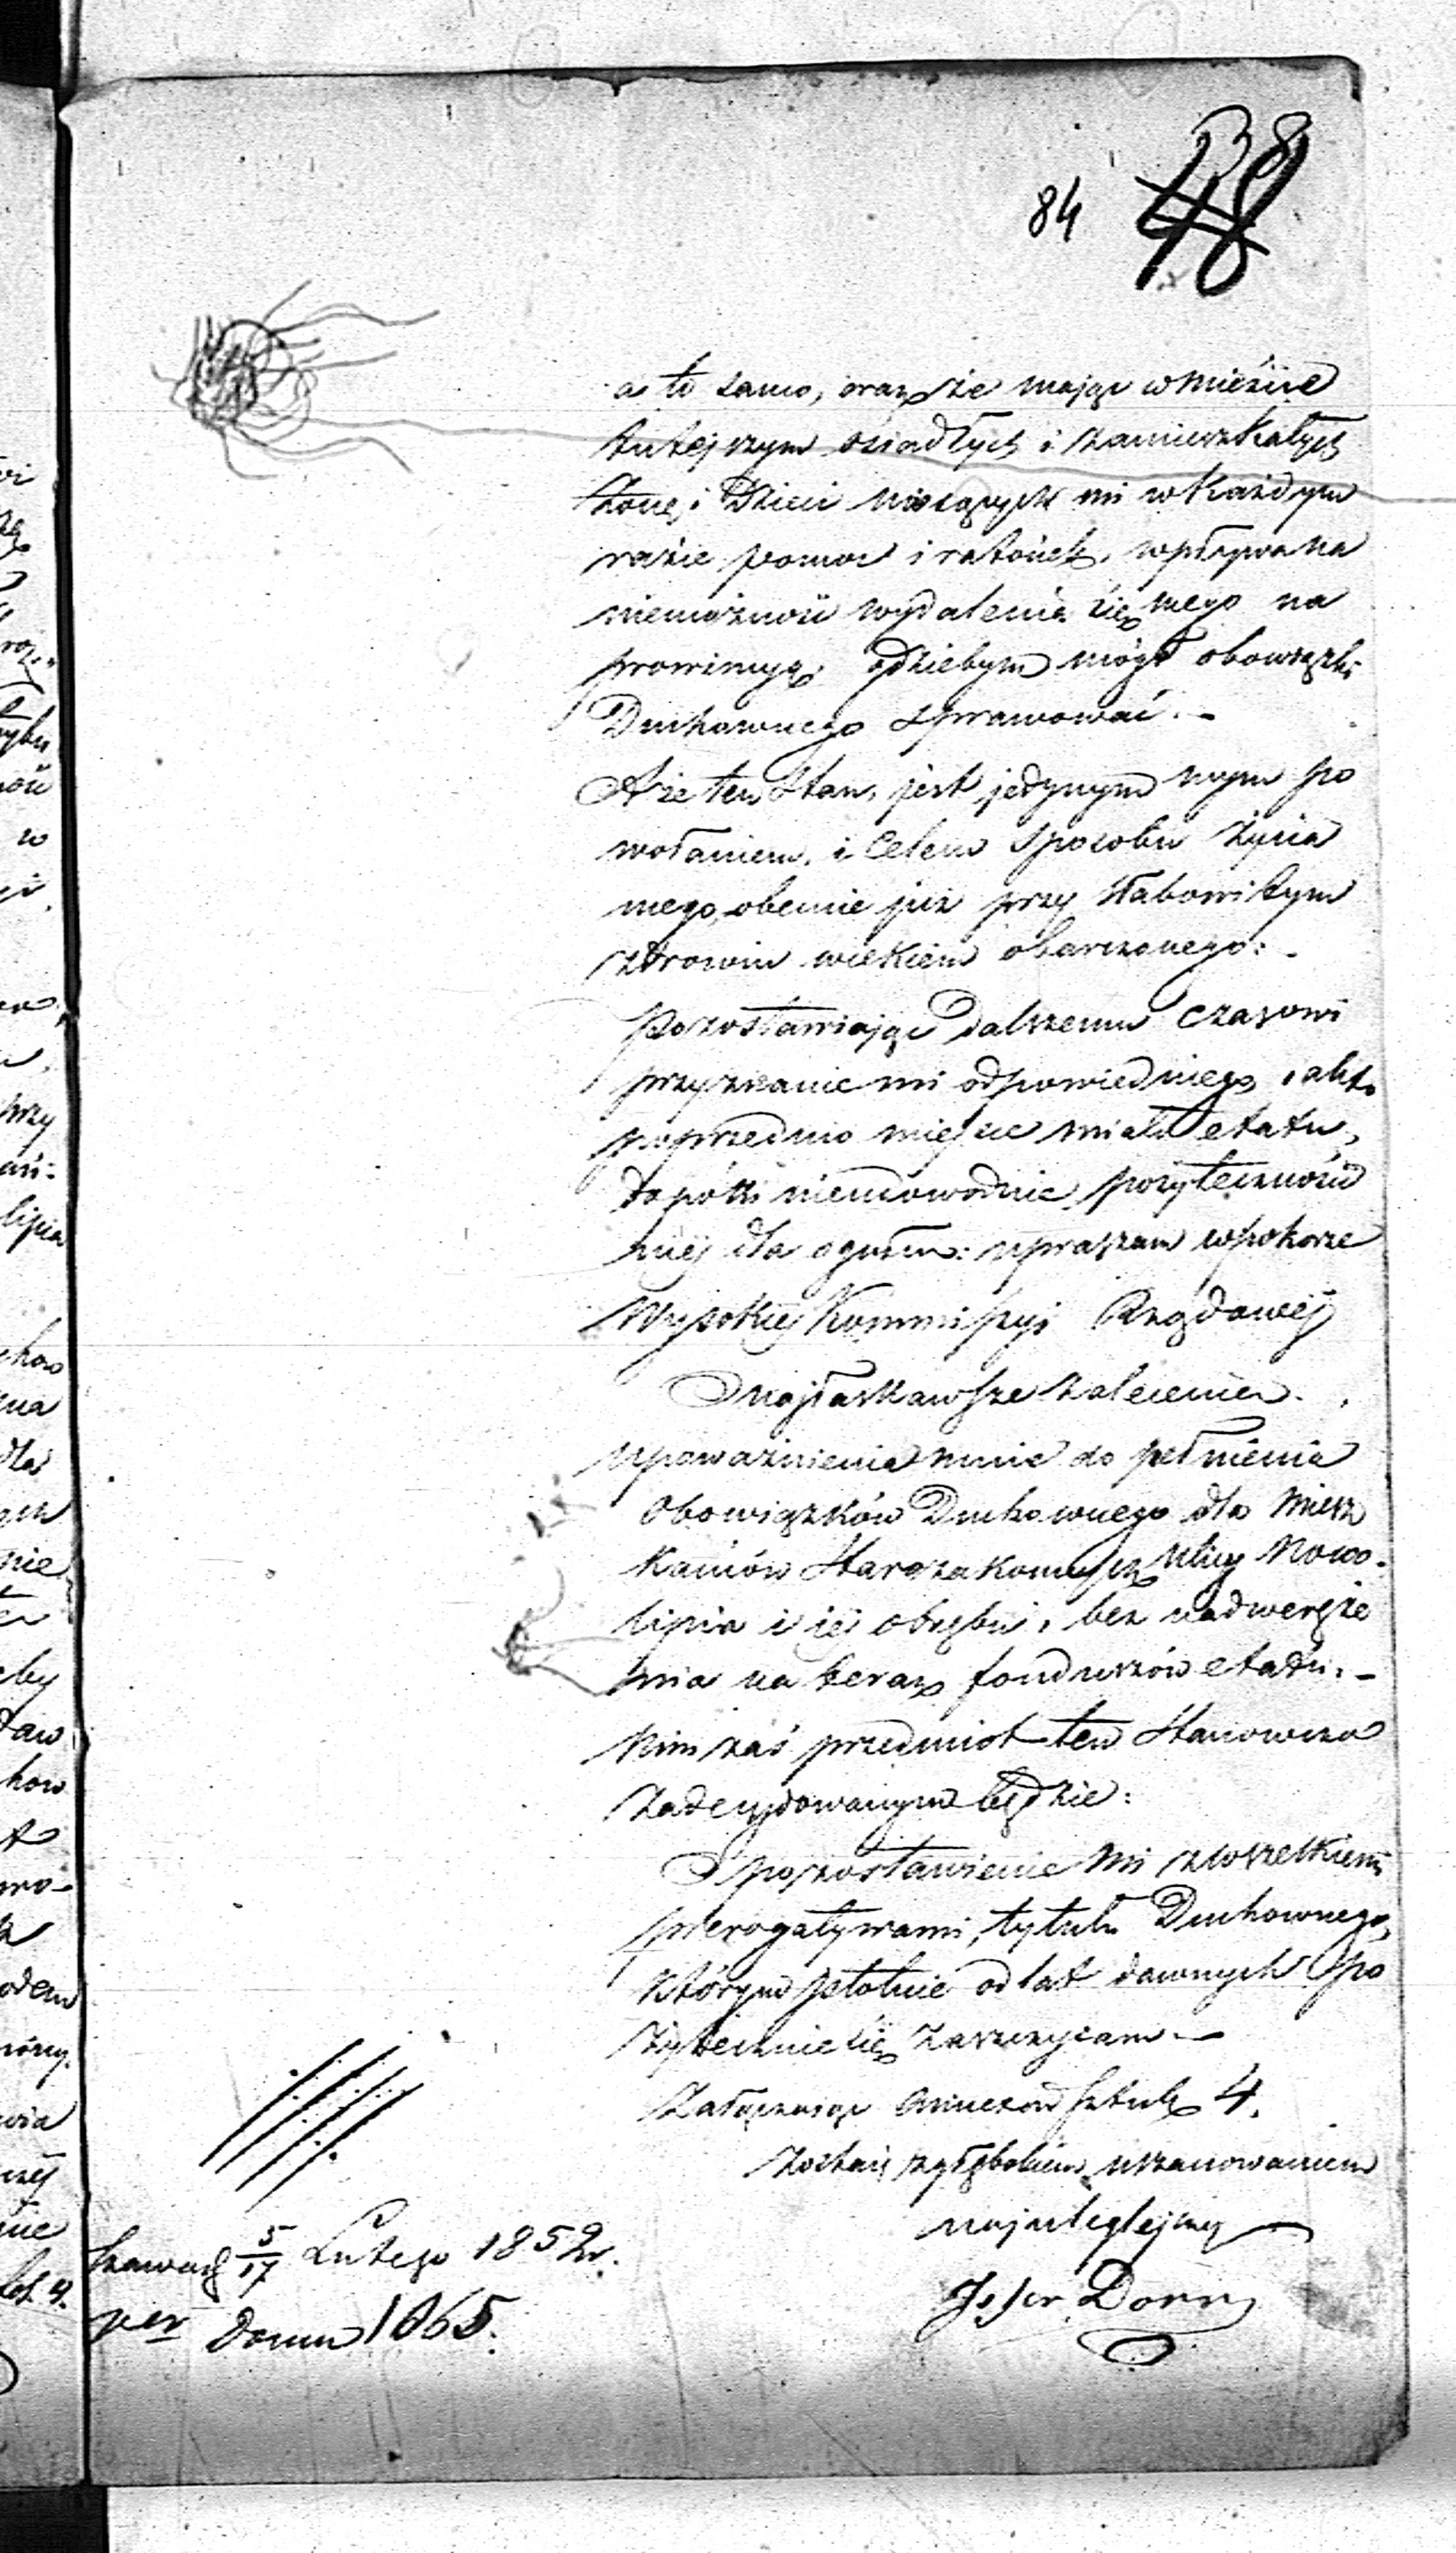 38
84 48
a to samo, oraz że mając w mieście
tutejszym osiadłych i zamieszkałych
Żonę i Dzieci niosących mi w każdym
razie pomoc i ratónek, wpływa na
niemożność wydalenia się mego na
prowincyą, gdziebym mógł obowiązki
Duchownego sprawować. –
A że ten Stan, jest jedynym mym po
wołaniem, i Celem sposobu życia
mego, obecnie już przy słabowitym
zdrowiu wiekiem obarczonego: –
Pozostawiając dalszemu czasowi
przyznanie mi odpowiedniego,
poprzednio miejsce miało etatu,
dopóki nieudowodnię pożyteczności
mej dla ogółu: upraszam w pokorze
Wysokiej Kommissyi Rządowej
O najłaskawsze zalecenie
upoważnienia mnie do pełnienia
Obowiązków Duchownego dla miesz
kańców Starozakonnych Ulicy Nowo-
lipia i jej obrębu, bez nadweręże
nia na teraz fonduszów etatu. –
Nim zaś przedmiot ten stanowczo
zadecydowanym będzie:
O pozostawienie mi z wszelkiemi
prerogatywami, tytułu Duchownego,
którym istotnie od lat dawnych po
żytecznie się zaszczycam –
Załączając Annexów sztuk 4.
Zostaję z głębokiem uszanowaniem
najuleglejszy
Josser Dorn
5/17 Lutego 1852 r.
domu 1065.